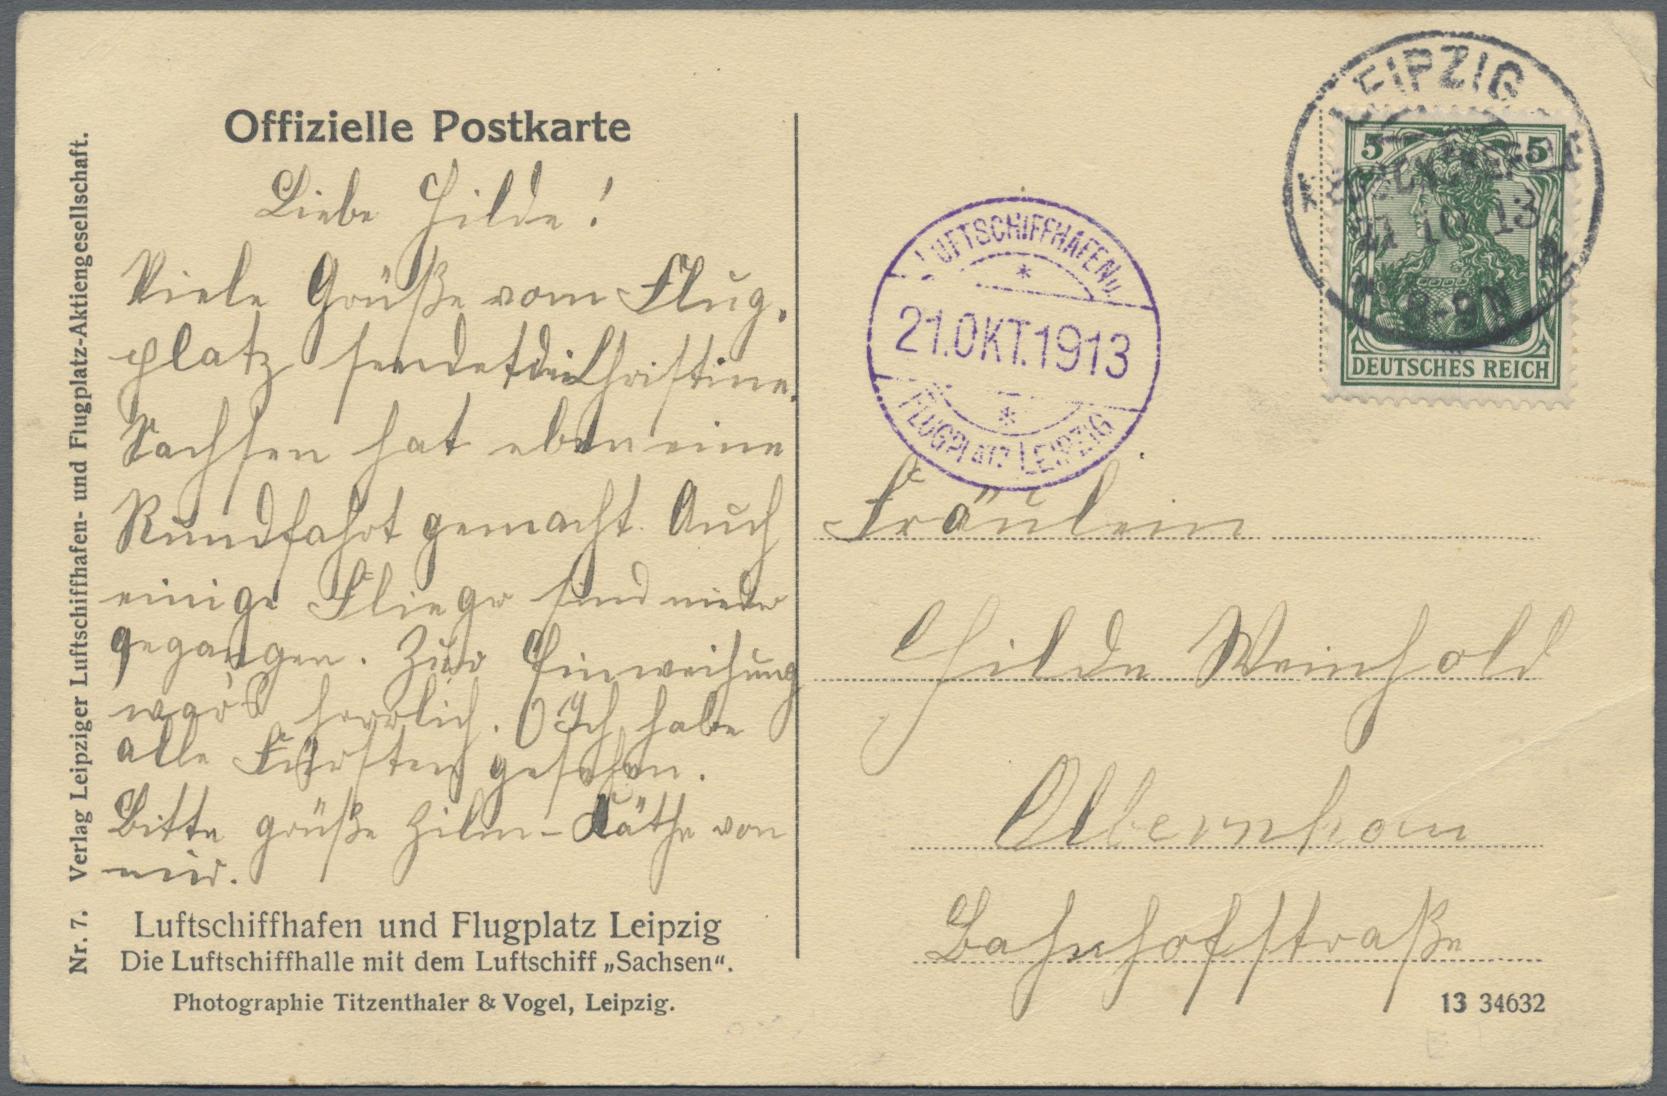 Offizielle Postkarte
Liebe Hilde!
Viele Grüße vom Flug-
platz sendet dir Christine.
Sachsen hat eben eine
Rundfahrt gemacht. Auch
einige Flieger sind nieder
gegangen. Zur Einweihung
war's herrlich. Ich habe
alle Fürsten gesehen.
Bitte grüße Käthe von
mir.
Luftschiffhafen und Flugplatz Leipzig
Die Luftschiffhalle mit dem Luftschiff „Sachsen“.
Photographie Titzenthaler & Vogel, Leipzig.
Nr. 7. Verlag Leipziger Luftschiffhafen- und Flugplatz-Aktiengesellschaft.
LUFTSCHIFFHAFEN u.
21.OKT.1913
FLUGPLATZ LEIPZIG
LEIPZIG
10 13
8-9N
5 5
DEUTSCHES REICH
Fräulein
Hilde Weinhold
Olbernhau
Bahnhofstraße
13 34632